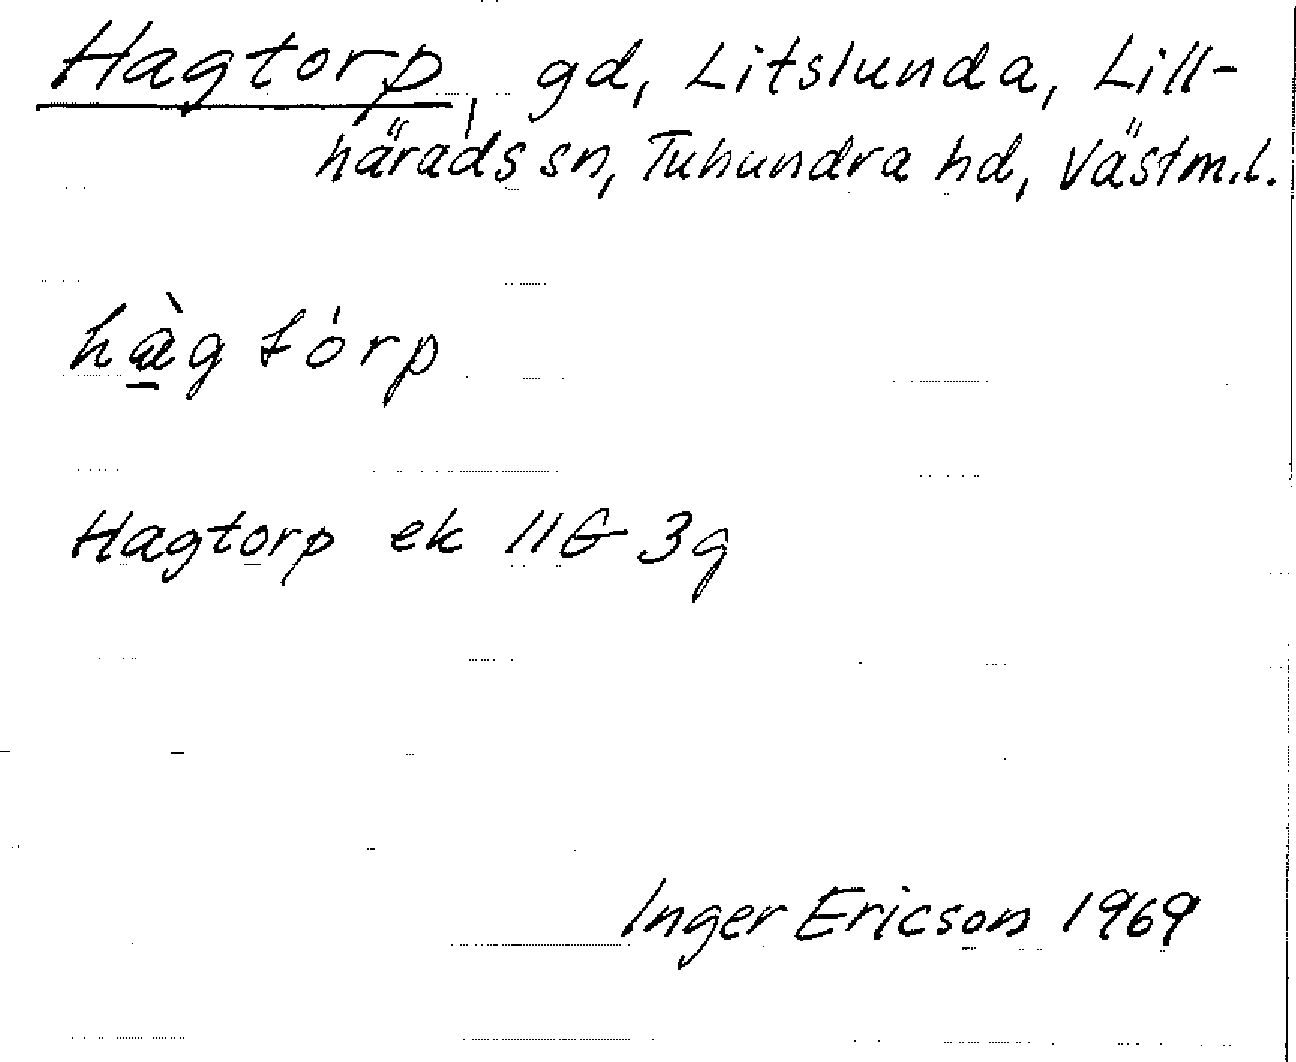 Hagtorp, gd, Litslunda, Lill-
härads sn, Tuhundra hd, Västm.l.
hàg tórp
Hagtorp ek 11G 3g
Inger Ericson 1969